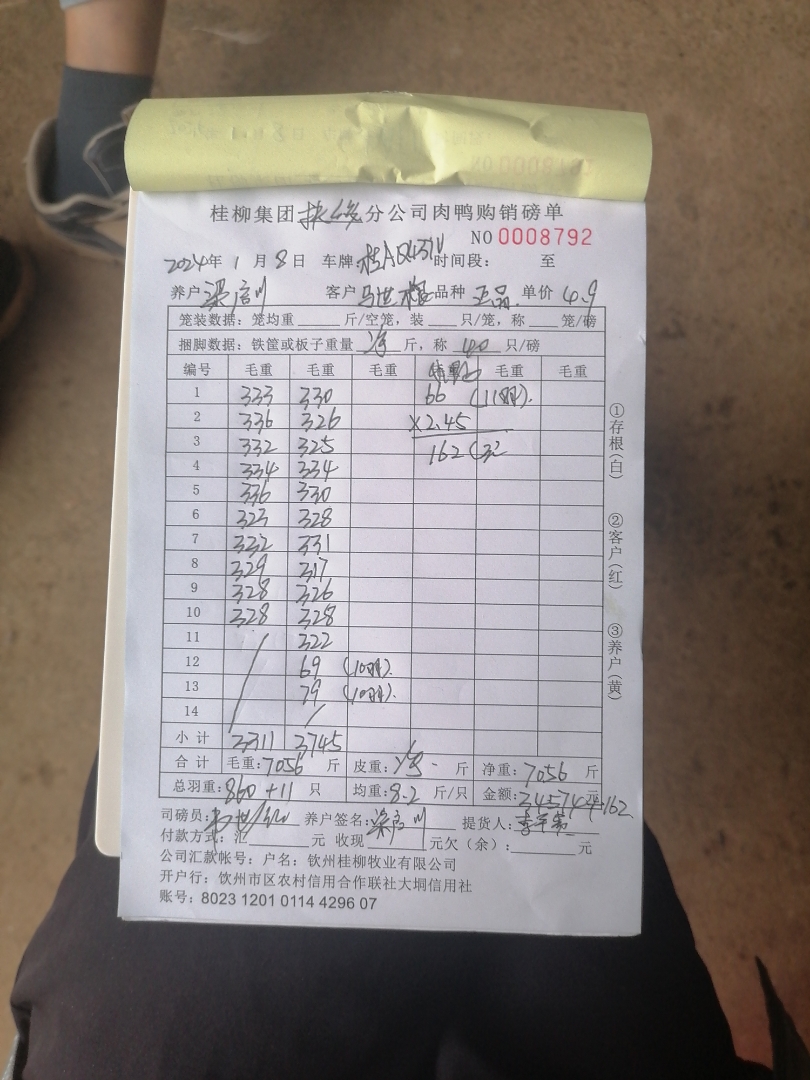 桂柳集团 分公司肉鸭购销磅单
NO 0008792
2024年 1 月 8 日 车牌: 时间段: 至
养户: 客户: 品种 正品 单价 4.9
笼装数据: 笼均重 斤/空笼, 装 只/笼, 称 笼/磅
捆脚数据: 铁筐或板子重量 净 斤, 称 40 只/磅
编号 毛重 毛重 毛重 毛重 毛重
1 333 330 66 (11只).
2 336 326 ×2.45
3 332 325 162
4 334 334
5 336 330
6 323 328
7 332 331
8 329 317
9 328 326
10 328 328
11 / 322
12 69 (10只).
13 79 (10只).
14 /
小计 3311 3745
合计 毛重: 7056 斤 皮重: 净 斤 净重: 7056 斤
总羽重: 860+11 只 均重: 8.2 斤/只 金额: 34574.4+162 元
司磅员: 养户签名: 提货人:
付款方式: 汇 元 收现 元欠(余): 元
公司汇款帐号: 户名: 钦州桂柳牧业有限公司
开户行: 钦州市区农村信用合作联社大垌信用社
账号: 8023 1201 0114 4296 07
①存根(白) ②客户(红) ③养户(黄)